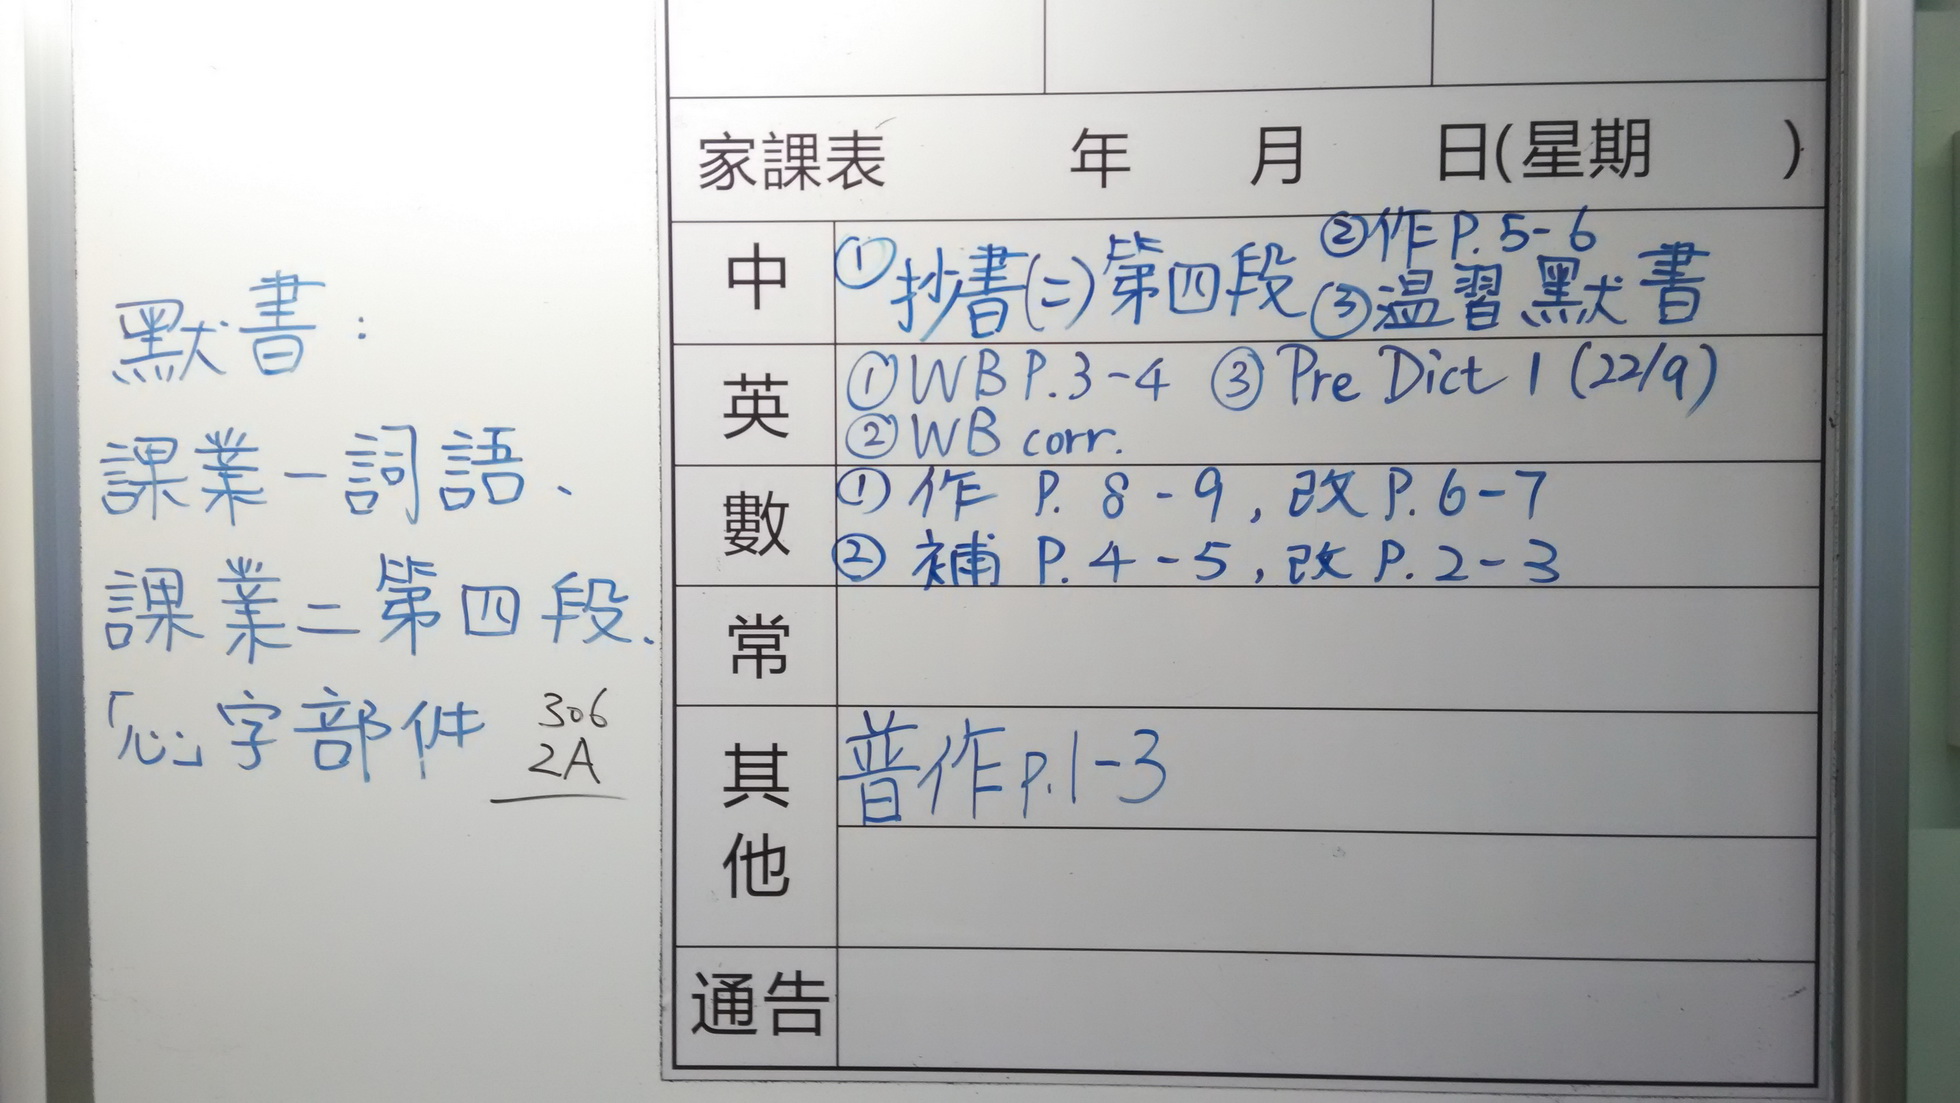 默書：
課業一詞語、
課業二第四段、
「心」字部件
306
2A
家課表 年 月 日(星期 )
中
①抄書(二)第四段
②作P.5-6
③温習默書
英
①WB P.3-4 ③Pre Dict 1 (22/9)
②WB corr.
數
①作 P. 8-9, 改P. 6-7
②補 P. 4-5, 改P. 2-3
常
其他
普作p.1-3
通告